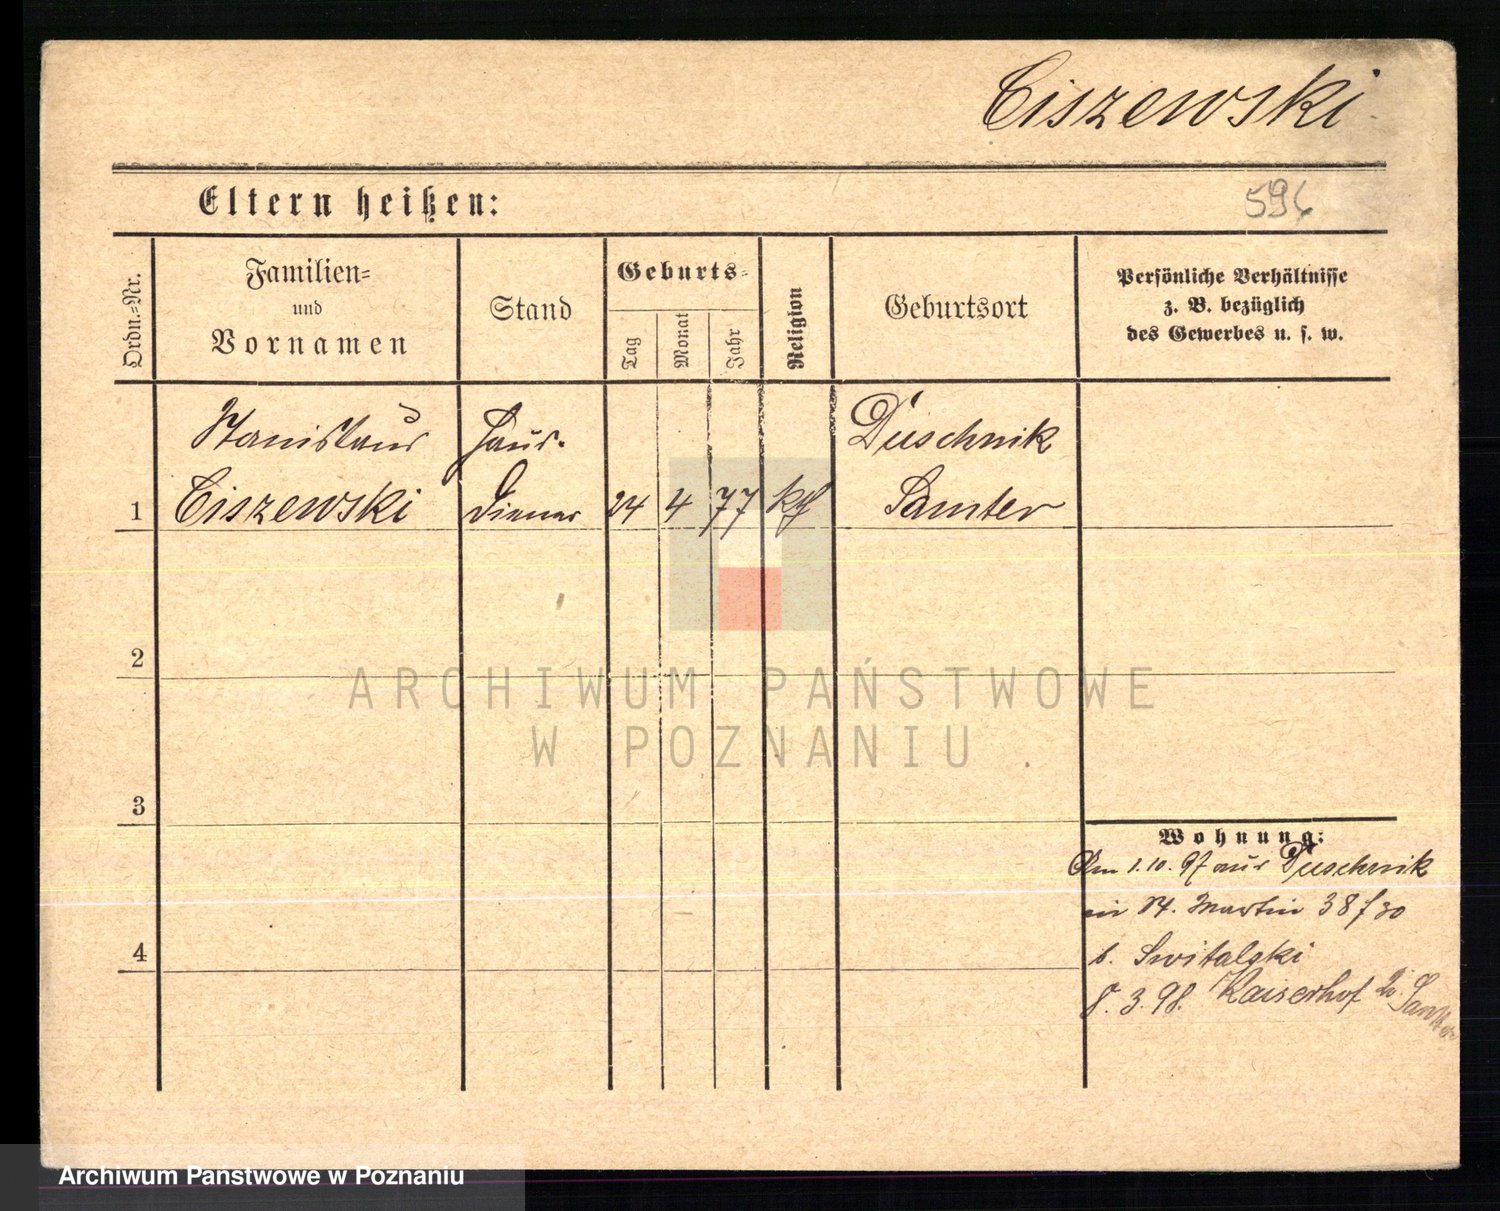 Ciszewski
Eltern heißen:
596
Ordn.=Nr.
Familien=
und
Vornamen
Stand
Geburts=
Tag
Monat
Jahr
Religion
Geburtsort
Persönliche Verhältnisse
z. B. bezüglich
des Gewerbes u. s. w.
Stanislaus
Haus-
Duschnik
1
Ciszewski
diener
24
4
77
kth
Samter
2
ARCHIWUM PAŃSTWOWE
W POZNANIU.
3
Wohnung:
Am 1.10.97 aus Duschnik
in St. Martin 38 f 30
b. Switalski
8.3.98. Kaiserhof
4
Archiwum Państwowe w Poznaniu